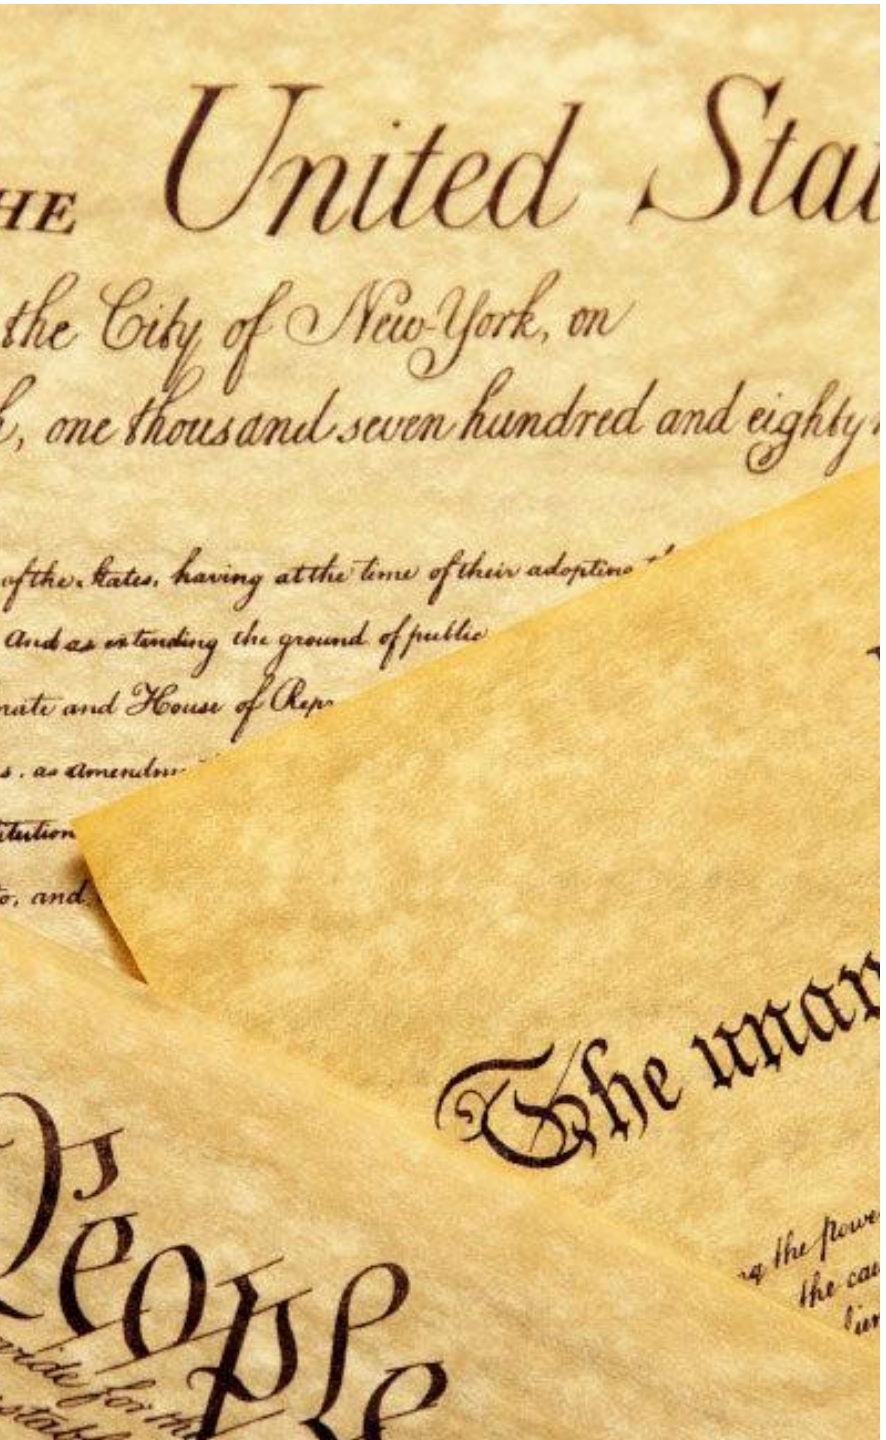 HE United Stat
the City of New-York, on
h, one thousand seven hundred and eighty
of the States, having at the time of their adopting
And as extending the ground of public
nate and House of Rep
s. as amendm
titution
to, and
The unan
the powe
the cau
People
vide for the